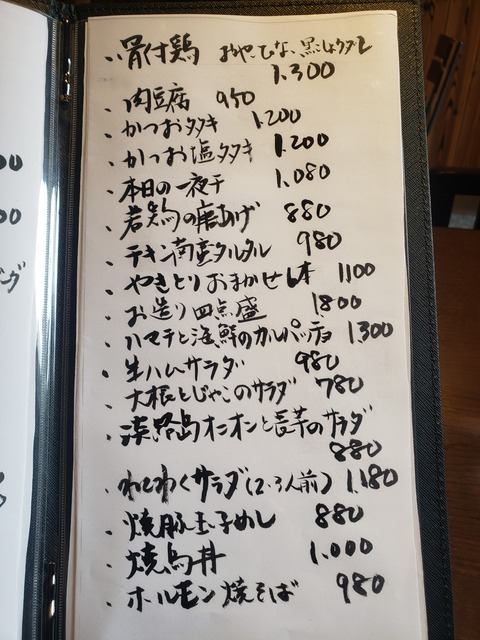 ・骨付鶏 おや ひな、黒こしょうダレ
1.300
・肉豆腐 950
・かつおタタキ 1.200
・かつお塩タタキ 1.200
・本日の一夜干 1.080
・若鶏の唐あげ 880
・チキン南蛮タルタル 980
・やきとりおまかせ6本 1100
・お造り四点盛 1800
・ハマチと海鮮のカルパッチョ 1300
・生ハムサラダ 980
・大根とじゃこのサラダ 780
・淡路島オニオンと長芋のサラダ
880
・わくわくサラダ(2.3人前) 1.180
・焼豚玉子めし 880
・焼鳥丼 1.000
・ホルモン焼そば 980
00
00